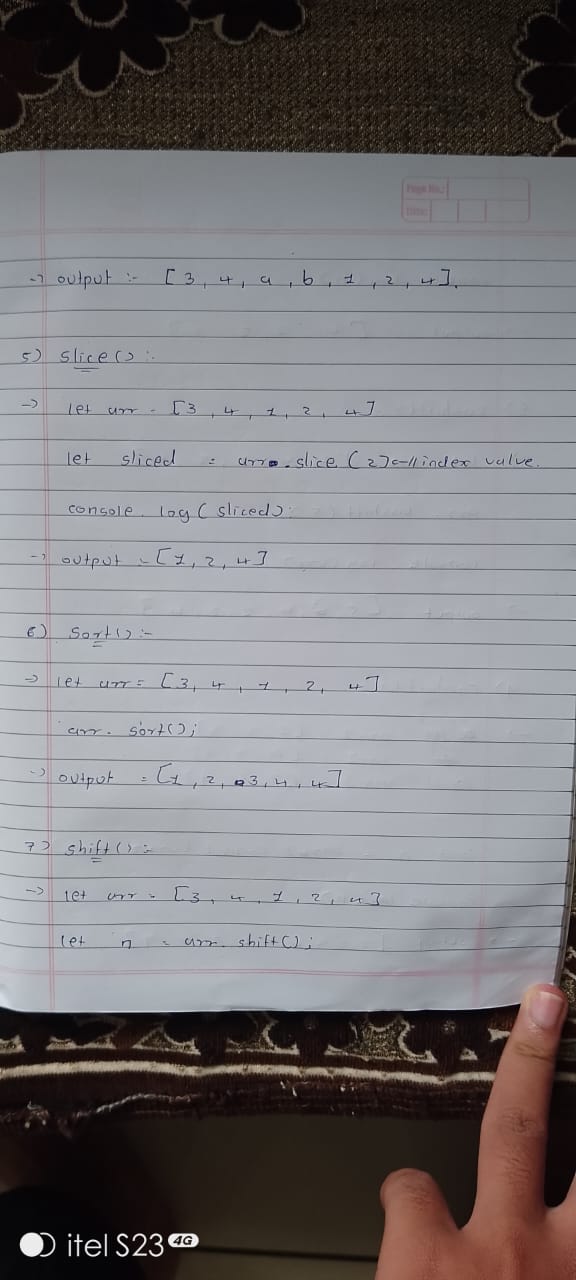 Page No.:
Date:
-> output :- [ 3, 4, a, b, 1, 2, 4 ].
5) slice() :-
-> let arr = [3, 4, 1, 2, 4]
let sliced = arr.slice(2) <-// index value.
console.log(sliced);
-> output = [1, 2, 4]
6) Sort() :-
-> let arr = [3, 4, 1, 2, 4]
arr.sort();
-> output = [1, 2, 3, 4, 4]
7) shift() :-
-> let arr = [3, 4, 1, 2, 4]
let n = arr.shift();
itel S23 4G